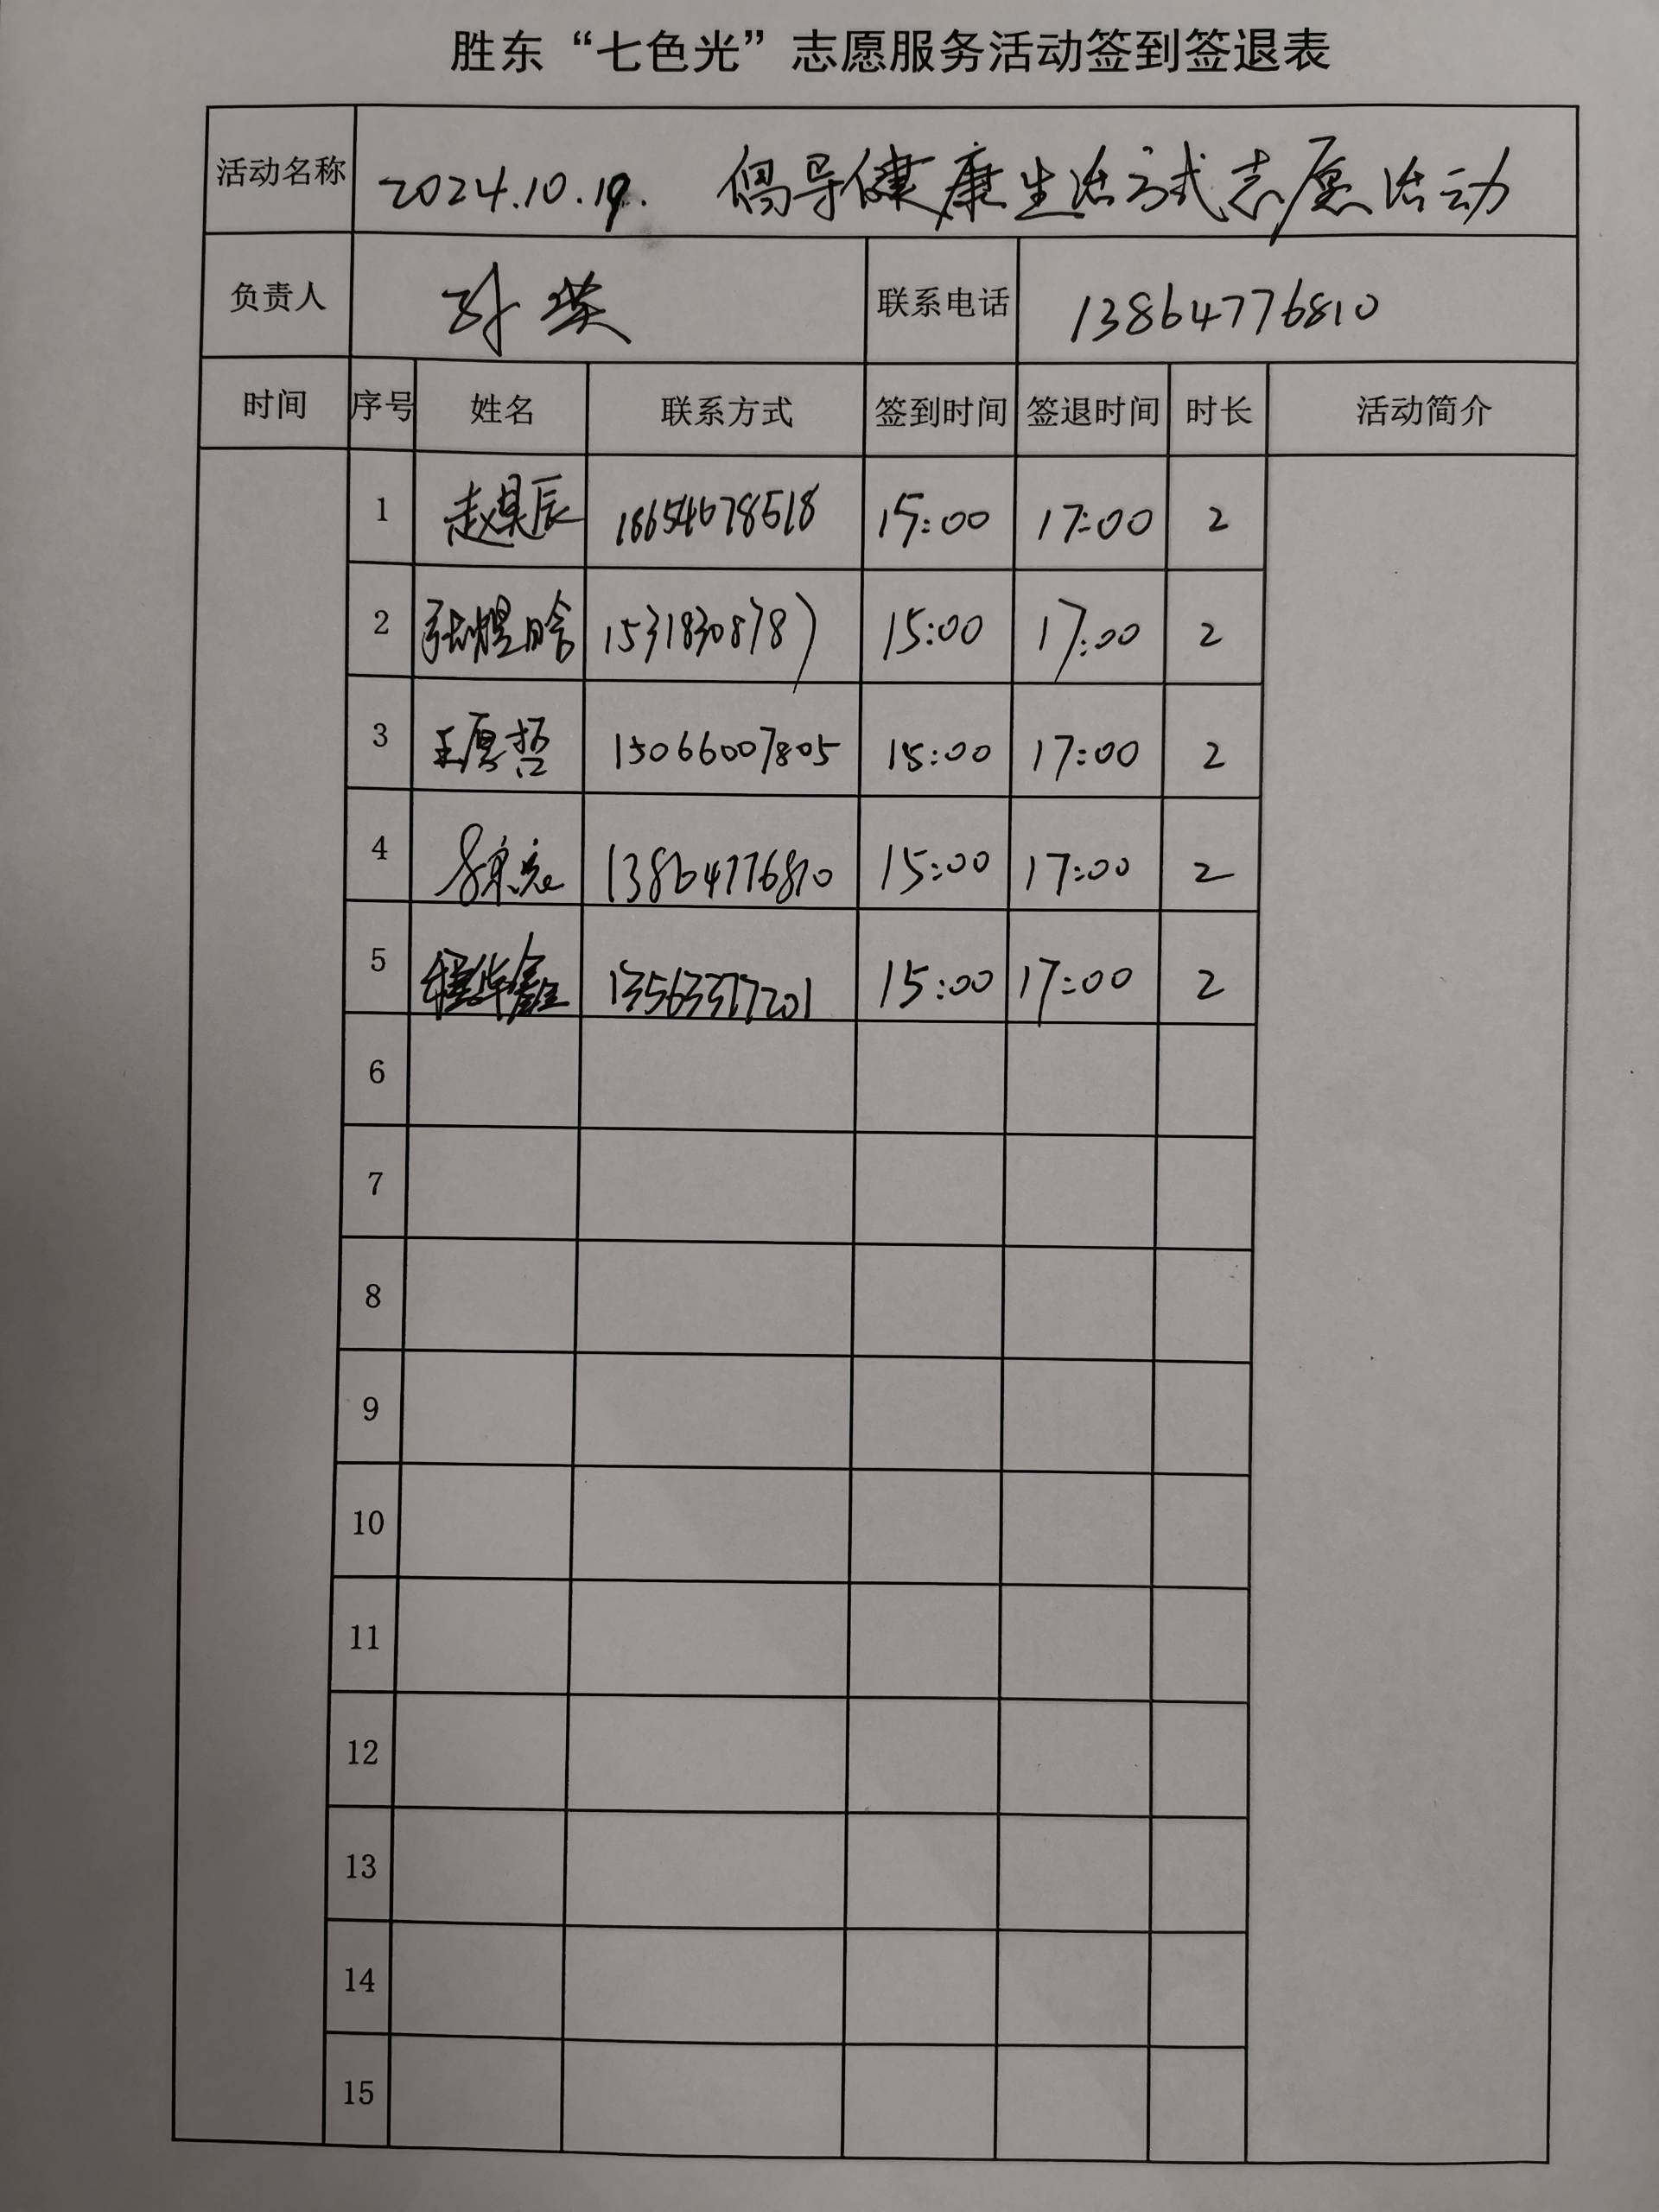 胜东“七色光”志愿服务活动签到签退表
活动名称 2024.10.19. 倡导健康生活方式志愿活动
负责人 孙英 联系电话 13864776810
时间 序号 姓名 联系方式 签到时间 签退时间 时长 活动简介
1 赵其辰 18654678518 15:00 17:00 2
2 张煜晗 15318308787 15:00 17:00 2
3 王厚哲 15066007805 15:00 17:00 2
4 13864776810 15:00 17:00 2
5 程华鑫 13563377201 15:00 17:00 2
6
7
8
9
10
11
12
13
14
15